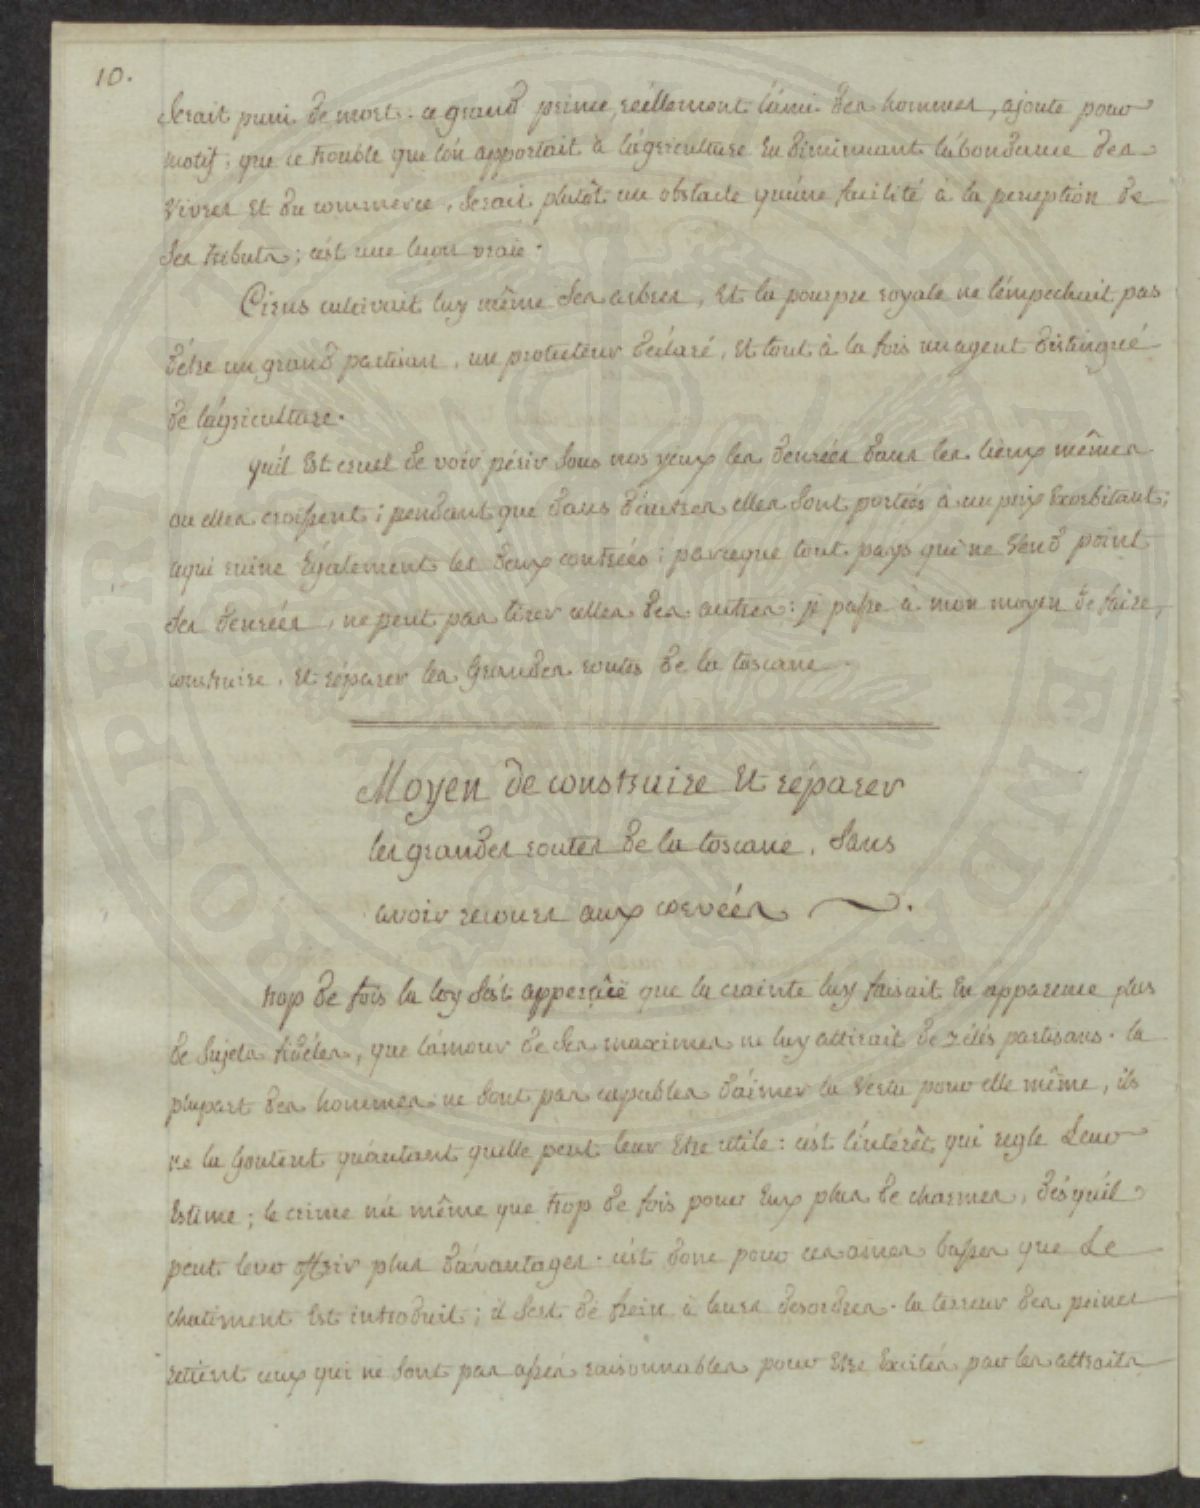 10.
serait puni de mort. ce grand prince, réellement l'ámi des hommes, ajoute pour
motif; que ce trouble que l'on apportait à l'ágriculture en diminuant l'ábondance des
vivres et du commerce, serait plutôt un obstacle qu'úne facilité à la perception de
ses tributs; c'ést une leçon vraie.
Cirus cultivait luy même ses arbres, Et la pourpre royale ne l'émpechait pas
d'étre un grand partisan, un protecteur déclaré, Et tout à la fois un agent distingué
de l'ágriculture.
qu'il Est cruel de voir périr sous nos yeux les denrées dans les lieux mêmes
ou elles croissent; pendant que dans d'áutres elles sont portées à un prix Exorbitant;
cequi ruine Egalement les deux contrées; parceque tout pays qui ne vend point
ses denrées, ne peut pas tirer celles des autres: je passe à mon moyen de faire,
construire, Et réparer les Grandes routes de la toscane.
Moyen de construire Et réparer
les grandes routes de la toscane, sans
avoir recours aux corvées.
trop de fois la loy s'ést apperçûe que la crainte luy faisait En apparence plus
de sujets fidéles, que l'ámour de ses maximes ne luy attirait de zélés partisans. la
plupart des hommes ne sont pas capables d'áimer la vertu pour elle même, ils
ne la Goutent qu'áutant quelle peut leur Etre utile: c'ést l'íntérêt qui regle Leur
Estime; le crime n'á même que trop de fois pour Eux plus de charmes, dés qu'íl
peut leur offrir plus d'ávantages. c'ést donc pour ces ames basses que Le
chatiment Est introduit; il sert de frein à leurs desordres. la terreur des peines
retient ceux qui ne sont pas assés raisonnables pour Etre Excités par les attraits